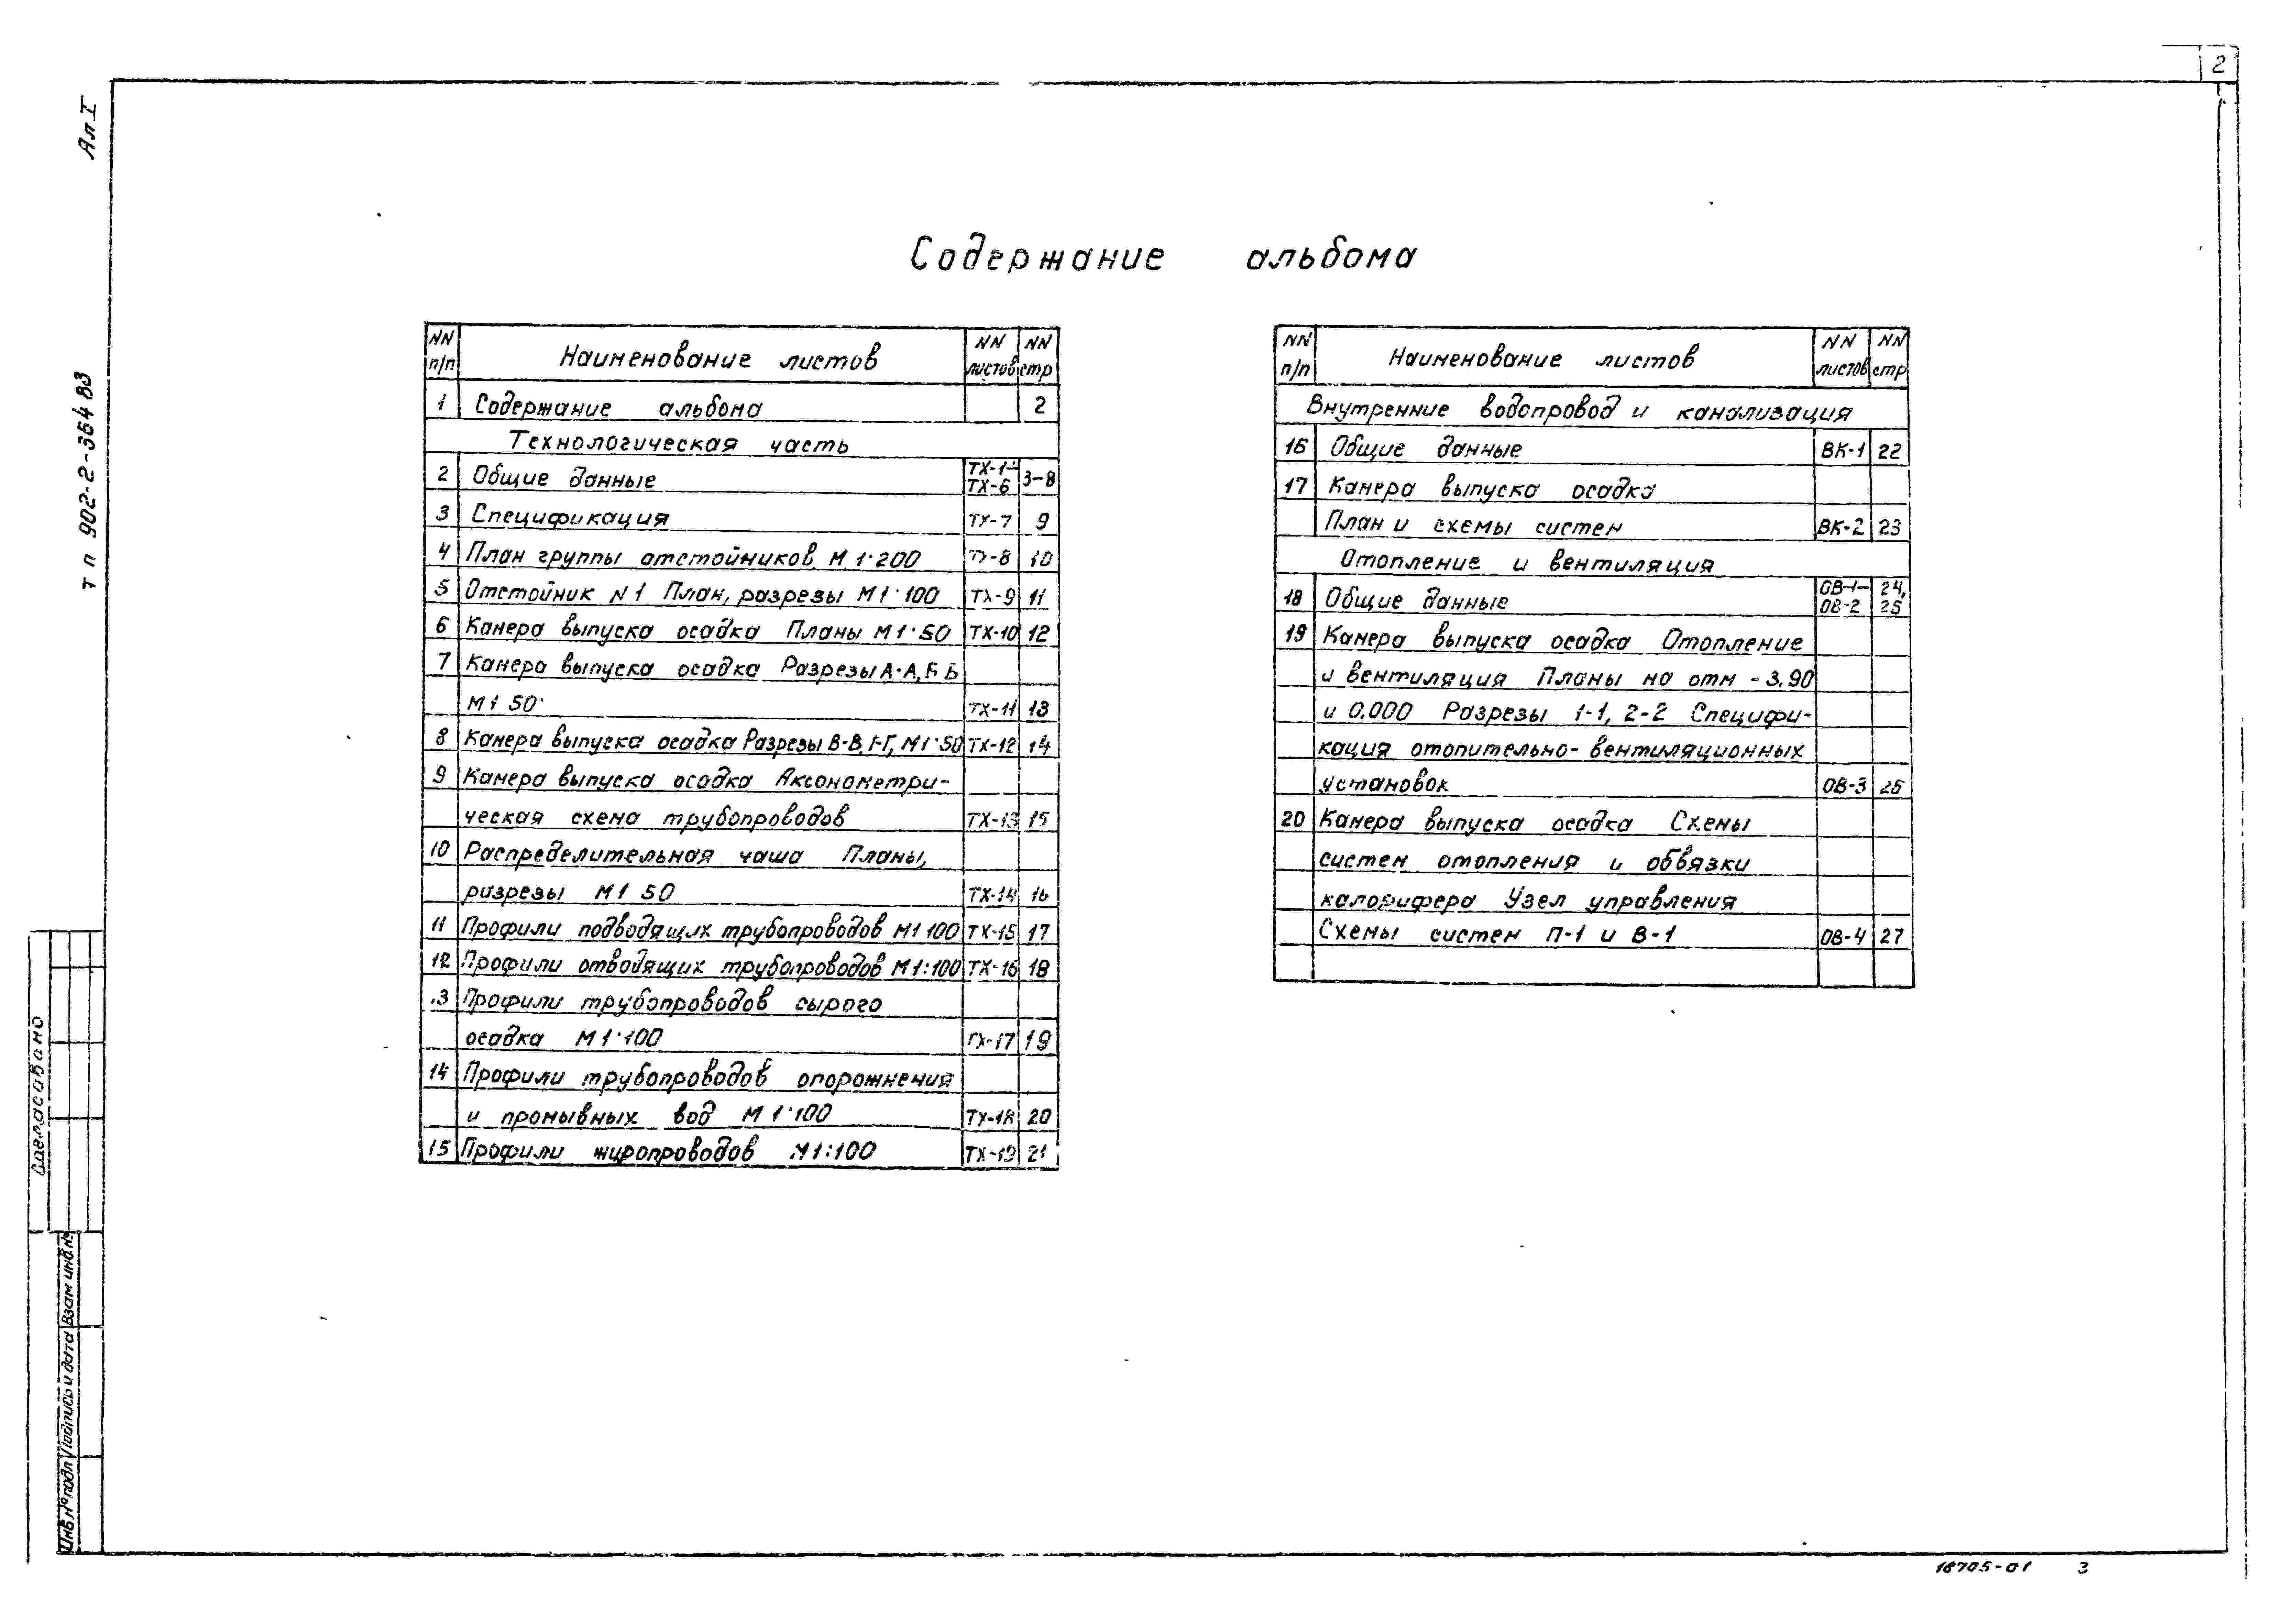 2
Ал I
т п 902-2-364 83
Содержание альбома
NN п/п Наименование листов NN листов NN стр
1 Содержание альбома 2
Технологическая часть
2 Общие данные ТХ-1- ТХ-6 3-8
3 Спецификация ТХ-7 9
4 План группы отстойников М 1:200 ТХ-8 10
5 Отстойник N 1 План, разрезы М 1:100 ТХ-9 11
6 Камера выпуска осадка Планы М 1:50 ТХ-10 12
7 Камера выпуска осадка Разрезы А-А, Б Б
М 1 50 ТХ-11 13
8 Камера выпуска осадка Разрезы В-В, Г-Г, М 1:50 ТХ-12 14
9 Камера выпуска осадка Аксонометри-
ческая схема трубопроводов ТХ-13 15
10 Распределительная чаша Планы,
разрезы М 1 50 ТХ-14 16
11 Профили подводящих трубопроводов М 1 100 ТХ-15 17
12 Профили отводящих трубопроводов М 1:100 ТХ-16 18
13 Профили трубопроводов сырого
осадка М 1:100 ТХ-17 19
14 Профили трубопроводов опорожнения
и промывных вод М 1:100 ТХ-18 20
15 Профили жиропроводов М 1:100 ТХ-19 21
NN п/п Наименование листов NN листов NN стр
Внутренние водопровод и канализация
16 Общие данные ВК-1 22
17 Камера выпуска осадка
План и схемы систем ВК-2 23
Отопление и вентиляция
18 Общие данные ОВ-1- ОВ-2 24, 25
19 Камера выпуска осадка Отопление
и вентиляция Планы на отм -3.90
и 0.000 Разрезы 1-1, 2-2 Специфи-
кация отопительно-вентиляционных
установок ОВ-3 26
20 Камера выпуска осадка Схемы
систем отопления и обвязки
калорифера Узел управления
Схемы систем П-1 и В-1 ОВ-4 27
Согласовано
Взам инв.№
Подпись и дата
Инв.№ подл
18705-01 3